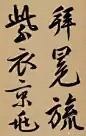 拜冕旒
紫衣京兆